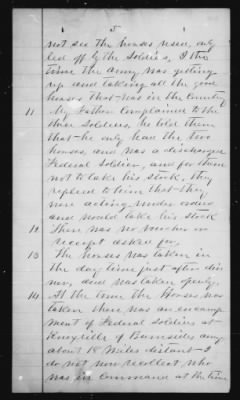 5
not see the horses used, only
led off by the Soldiers, I this
time the army was getting
up and taking all the good
horses that was in the Country
11 My Father complained to the
Soldiers, he told them
that he only had the two
horses, and was a discharged
Federal Soldier, and for them
not to take his stock, they
replied to him that they
were acting under orders
and would take his stock
12 There was no voucher or
receipt asked for,
13 The horses was taken in
the day time just after din
ner, and was taken openly,
14 At the time the Horses was
taken there was an encamp
ment of Federal Soldiers at
Knoxville of Burnsides army
about 18 miles distant I
do not now recollect who
was in command at the time